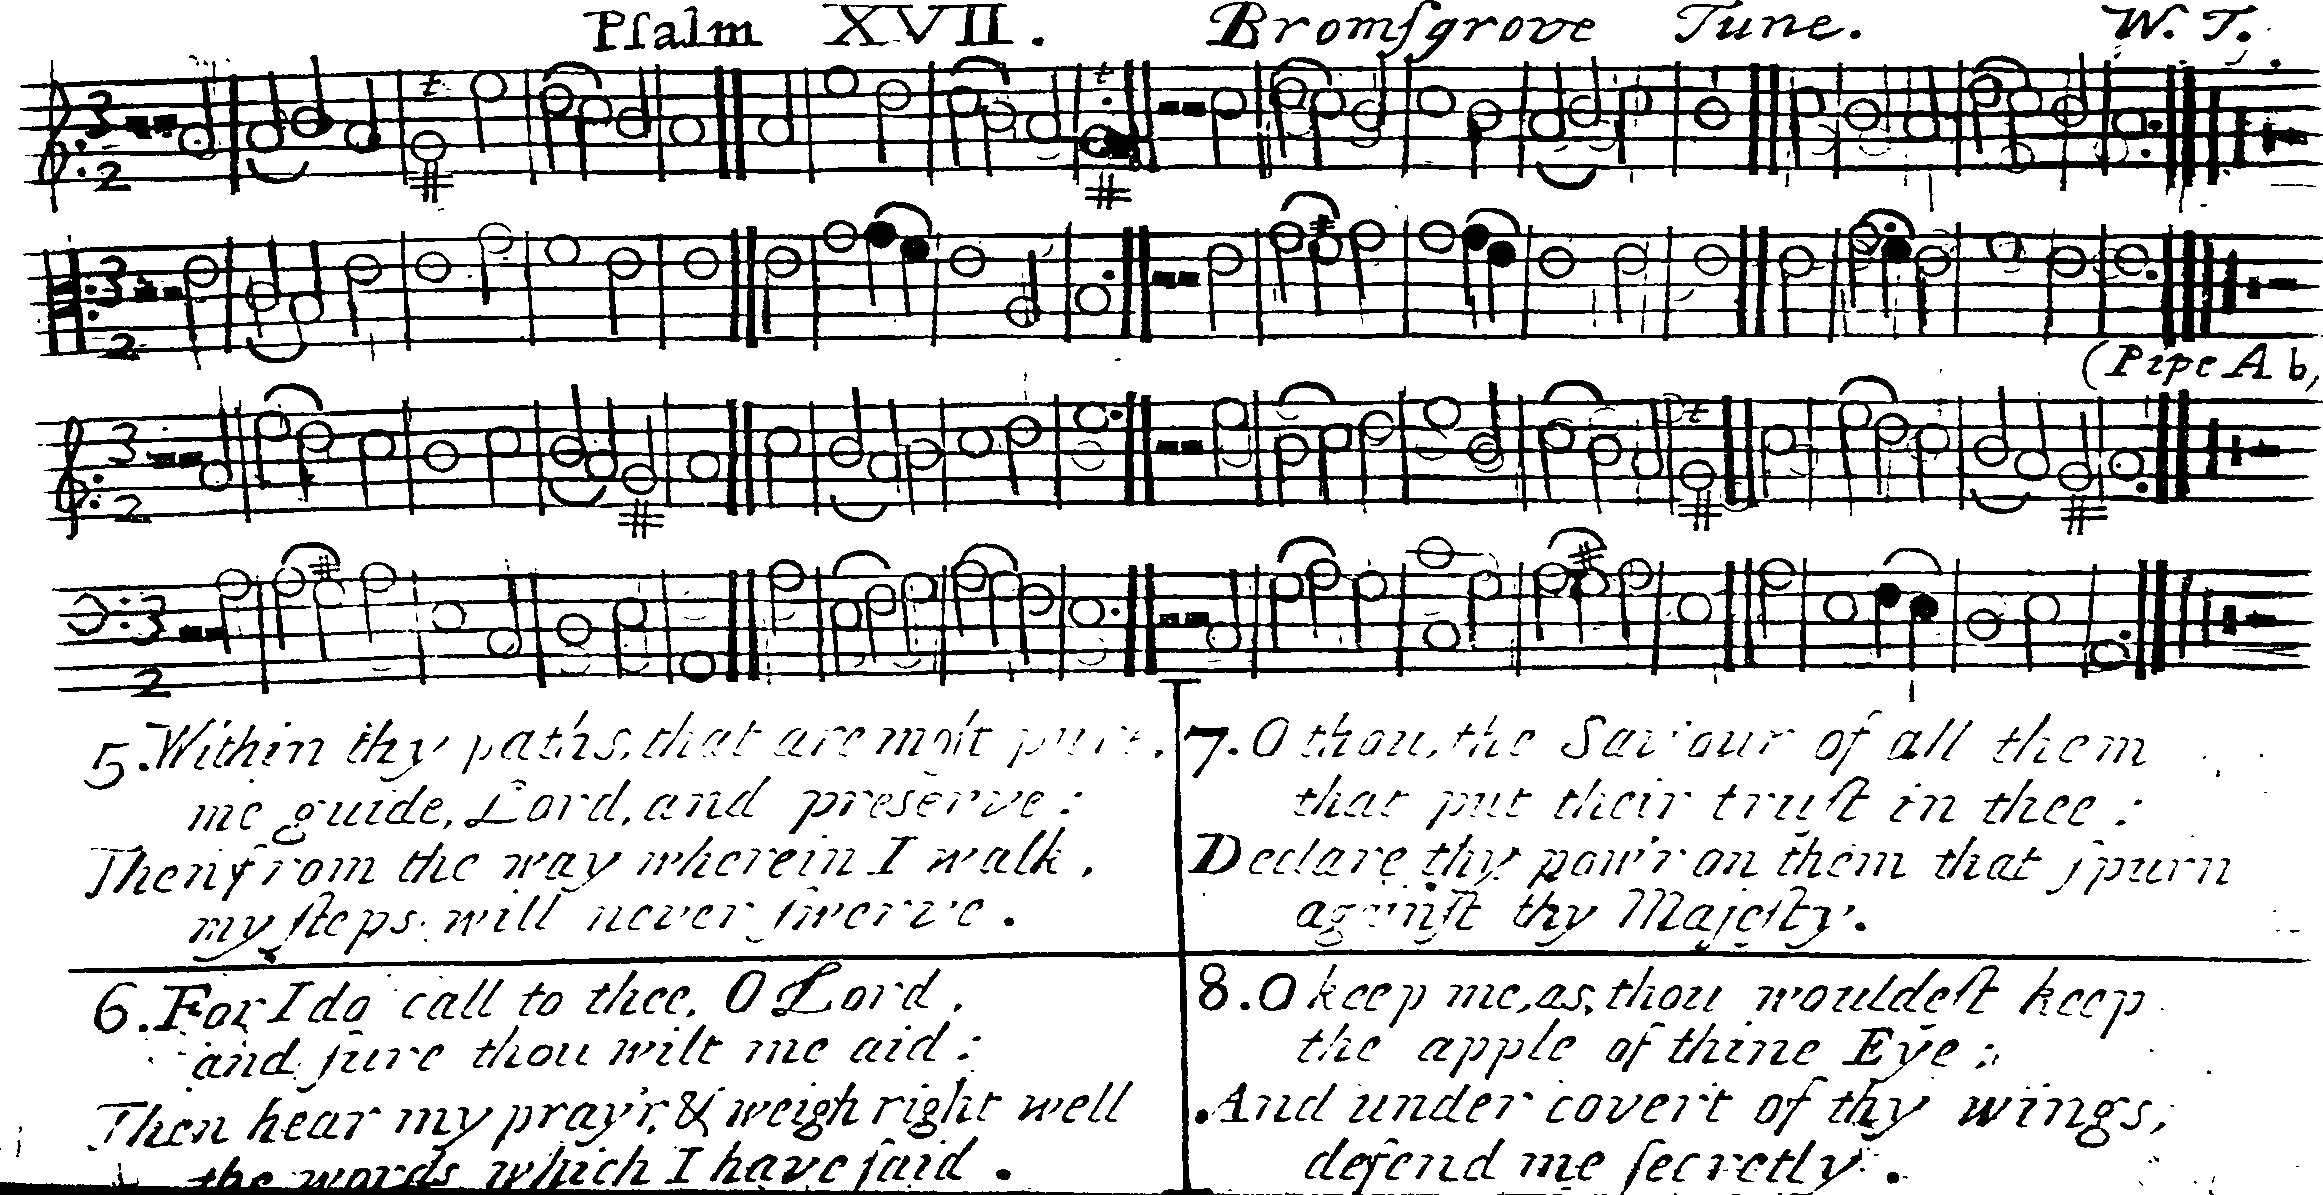 Pſalm XVII. Bromſgrove Tune. W. T.
(Pipe A b,
5. Within thy paths, that are moſt pure,
me guide, Lord, and preserve:
Then from the way wherein I walk,
my ſteps will never ſwerve.
6. For I do call to thee, O Lord,
and ſure thou wilt me aid:
Then hear my pray'r, & weigh right well
the words which I have ſaid.
7. O thou, the Saviour of all them
that put their truſt in thee:
Declare thy pow'r on them that ſpurn
againſt thy Majeſty.
8. O keep me, as thou wouldeſt keep
the apple of thine Eye:
And under covert of thy wings,
defend me ſecretly.